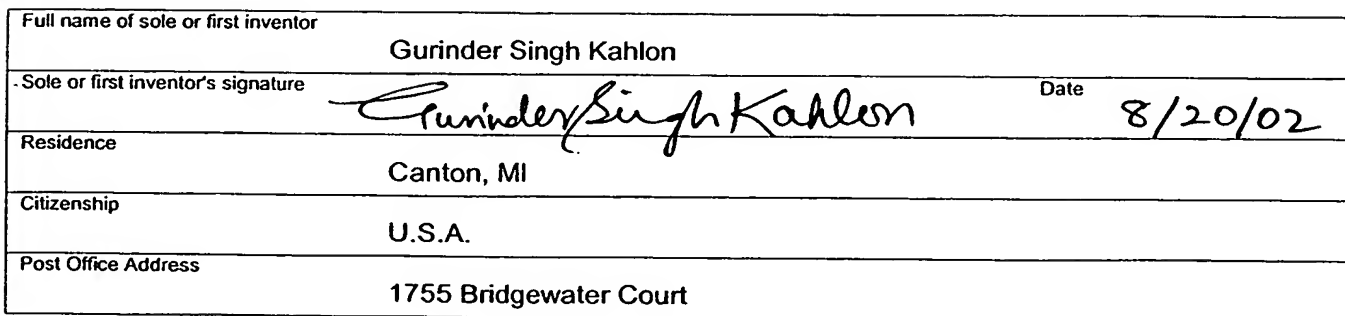 Full name of sole or first inventor
Gurinder Singh Kahlon
Sole or first inventor's signature
Gurinder Singh Kahlon
Date
8/20/02
Residence
Canton, MI
Citizenship
U.S.A.
Post Office Address
1755 Bridgewater Court